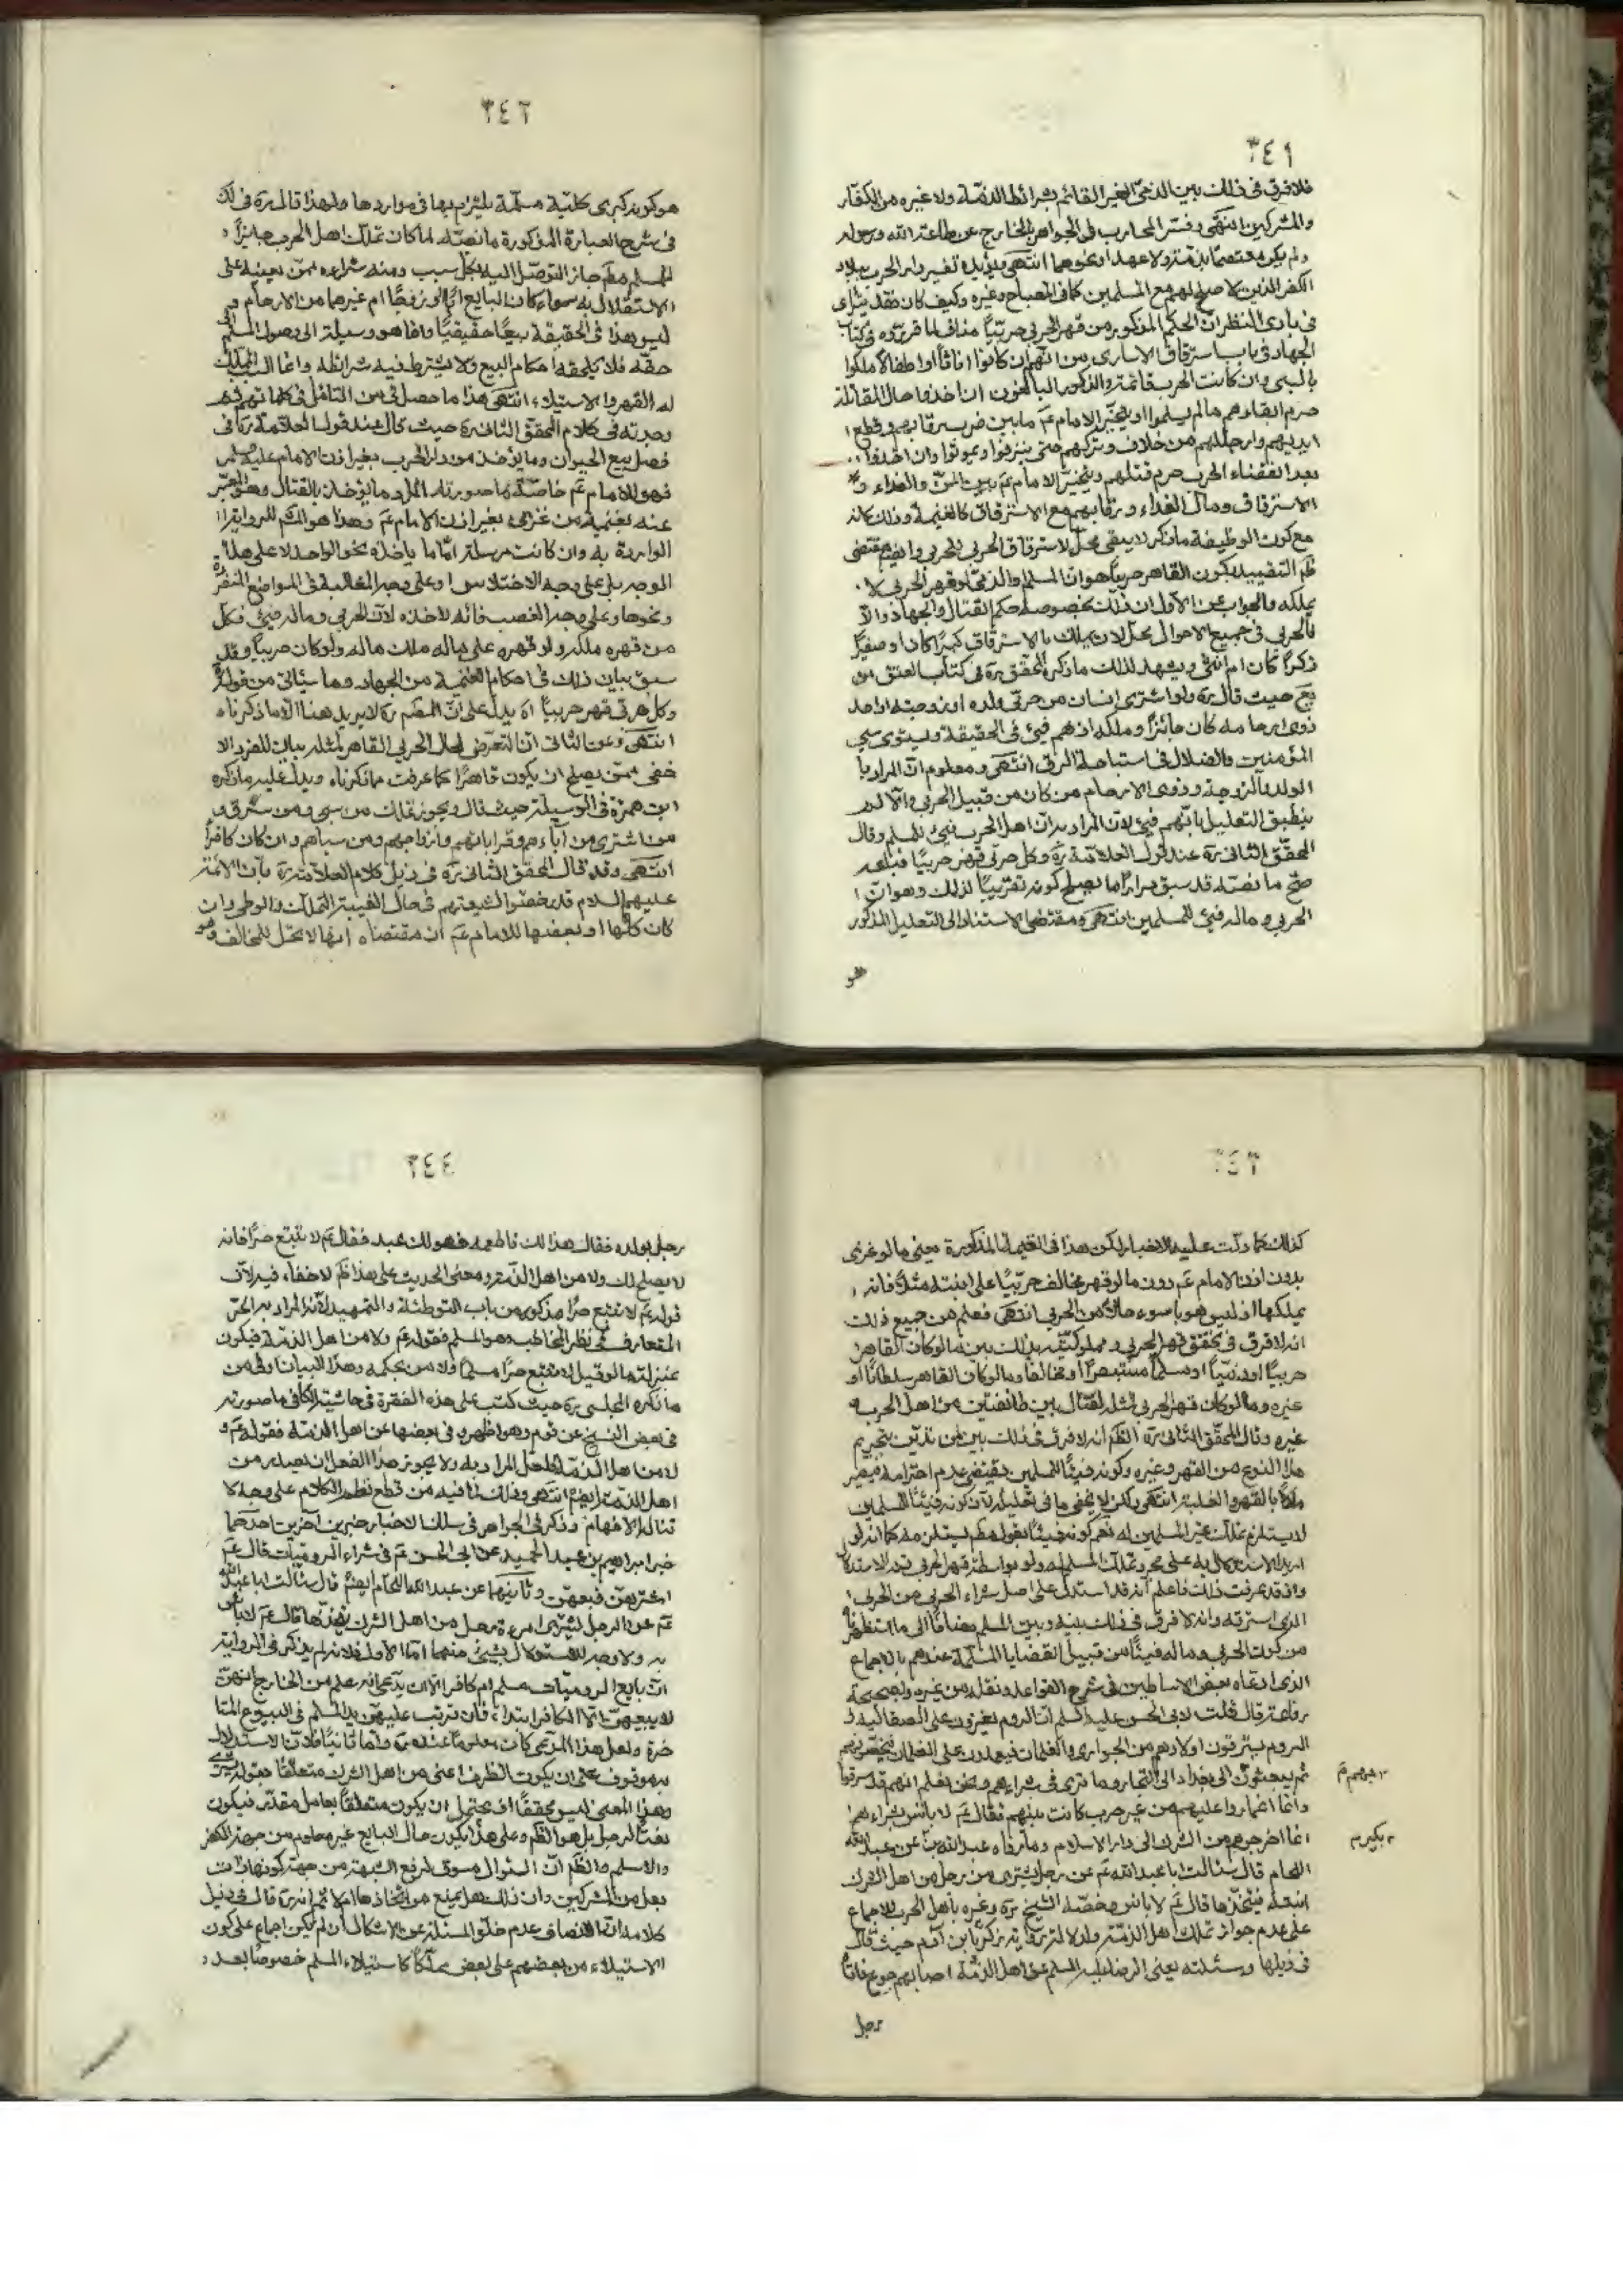 ٣٤١
فلا فرق في ذلك بين الذمي الغير القائم بشرائط الذمة ولا غيره من الكفار
والمشركين انتهى وفسر المحارب في الجواهر بالخارج عن طاعة الله ورسوله
ولم يكن معتصما بذمة ولا عهد او نحوهما انتهى ويؤيده تفسير دار الحرب ببلاد
الكفر الذين لا صلح لهم مع المسلمين كما في المصباح وغيره وكيف كان فقد يترائى
في بادى النظر ان الحكم المذكور من قهر الحربي حربيا مناف لما قرروه في كتاب
الجهاد في باب استرقاق الاسارى من انهم ان كانوا اناثا او اطفالا ملكوا
بالسبي وان كانت الحرب قائمة والذكور البالغون ان اخذوا حال المقاتلة
حرم ابقاؤهم ما لم يسلموا او يتخير الامام عم ما بين ضرب رقابهم وقطع
ايديهم وارجلهم من خلاف وتركهم حتى ينزفوا ويموتوا وان اخذوا
بعد انقضاء الحرب حرم قتلهم ويتخير الامام عم بين المن والفداء و
الاسترقاق ومال الفداء ورقابهم مع الاسترقاق كالغنيمة وذلك لانه
مع كون الوظيفة ما ذكر لا يبقى محل لاسترقاق الحربي للحربي وايضم مقتضى
ظم التقييد بكون القاهر حربيا هو ان المسلم والذمي لو قهر الحربي لا
يملكه والجواب عن الاول ان ذلك بخصوصه حكم القتال والجهاد والا
فالحربي في جميع الاحوال محل لان يملك بالاسترقاق كبيرا كان او صغيرا
ذكرا كان ام انثى ويشهد لذلك ما ذكره المحقق ره في كتاب العتق من
يع حيث قال ره ولو اشترى انسان من حربي ولده او زوجته او احد
ذوى ارحامه كان جائزا وملكه اذ هم فيئ في الحقيقة ويستوى سبي
المؤمنين والضلال في استباحة الرق انتهى ومعلوم ان المراد با
لولد والزوجة وذوى الارحام من كان من قبيل الحربي والا لم
ينطبق التعليل بانهم فيئ لان المراد به ان اهل الحرب فيئ للمسلم وقال
المحقق الثاني ره عند قول العلامة ره وكل حربي قهر حربيا فباعه
صح ما نصه قد سبق مرارا ما يصلح كونه تقريبا لذلك وهو ان
الحربي وماله فيئ للمسلمين انتهى ومقتضى الاستناد الى التعليل المذكور
هو
٣٤٢
هو كونه كبرى كلية مسلمة يلتزم بها في مواردها ولهذا قال ره في لك
في شرح العبارة المذكورة ما نصه لما كان تملك اهل الحرب جائزا
للمسلم مطم جاز التوصل اليه بكل سبب ومنه شراءه ممن يعينه على
الاستقلال به سواء كان البايع ابا او زوجا ام غيرهما من الارحام و
ليس هذا في الحقيقة بيعا حقيقيا وانما هو وسيلة الى وصول المسلم الى
حقه فلا يلحقه احكام البيع ولا يشترط فيه شرائطه وانما السبب المملك
له القهر والاستيلاء انتهى هذا ما حصل لى من التامل في كلماتهم ثم
وجدته في كلام المحقق الثاني ره حيث قال عند قول العلامة ره في
فصل بيع الحيوان وما يؤخذ من دار الحرب بغير اذن الامام عليه السلام
فهو للامام عم خاصة ما صورته المراد ما يؤخذ بالقتال وهو المعبر
عنه بغنيمة من غزى بغير اذن الامام عم وهذا هو الك للرواية
الواردة به وان كانت مرسلة اما ما ياخذه نحو الواحد لا على هذا
الوجه بل على وجه الاختلاس او على وجه المغالبة في المواضع المنفردة
ونحوها وعلى وجه الغصب فانه لاخذه لان الحربي وماله فيئ فكل
من قهره ملكه ولو قهره على ماله ملك ماله ولو كان حربيا وقد
سبق بيان ذلك في احكام الغنيمة من الجهاد وما سيأتى من قوله
وكل حربي قهر حربيا اه يدل على ان المصم ره لا يريد هنا الا ما ذكرناه
انتهى وعن الثاني ان التعرض لحال الحربي القاهر لمثله بيان للفرد الا
خفى ممن يصلح ان يكون قاهرا كما عرفت مما ذكرناه ويدل عليه ما ذكره
ابن حمزة في الوسيلة حيث قال ويجوز تملك من سبي ومن سرق و
من اشترى من آباءهم وقراباتهم وازواجهم ومن سباهم وان كان كافرا
انتهى وقد قال المحقق الثاني ره في ذيل كلام العلامة ره بان الائمة
عليهم السلام قد رخصوا لشيعتهم في حال الغيبة التملك والوطي وان
كان كلها او بعضها للامام عم ان مقتضاه انها لا تحل للمخالف وهو
٣٤٣
كذلك كما دلت عليه الاخبار لكن هذا في الغنيمة المذكورة يعني ما لو غزى
بدون اذن الامام عم دون ما لو قهر مخالف حربيا على ابنته مثلا فانه
يملكها اذ ليس هو باسوء حالا من الحربي انتهى فعلم من جميع ذلك
انه لا فرق في تحقق قهر الحربي ومملوكيته بذلك بين ما لو كان القاهر
حربيا او ذميا او مسلما مستبصرا او مخالفا وما لو كان القاهر سلطانا او
غيره وما لو كان قهر الحربي لمثله لقتال بين طائفتين من اهل الحرب و
غيره وقال المحقق الثاني ره الظم انه لا فرق في ذلك بين من تدين بتحريم
هذا النوع من القهر وغيره وكونه فيئا للمسلمين يقتضى عدم احترامه فيصير
ملكا بالقهر والغلبة انتهى ولكن لا يخفى ما في تعليله لان كونه فيئا للمسلمين
لا يستلزم تملك غير المسلمين له نعم كونه فيئا بقول مطم يستلزمه كما انه لو
اريد الاستدلال به على مجرد تملك المسلم له ولو بواسطة قهر الحربي تم الاستدلال
واذ قد عرفت ذلك فاعلم انه قد استدل على اصل شراء الحربي من الحربي
الذى استرقه وانه لا فرق في ذلك بينه وبين المسلم مضافا الى ما استظهر
من كون الحربي وماله فيئا من قبيل القضايا المسلمة عندهم بالاجماع
الذى ادعاه بعض الاساطين في شرح القواعد ونقله من غيره وبصحيحة
رفاعة قال قلت لابى الحسن عليه السلام ان الروم يغزون على الصقالبة و
الروم يسترقون اولادهم من الجوارى والغلمان فيعمدون على الغلمان فيخصونهم
ثم يبعثون الى بغداد الى التجار وما ترى في شراءهم ونحن نعلم انهم قد سرقوا
وانما اغاروا عليهم من غير حرب كانت بينهم فقال عم لا باس بشراءهم
انما اخرجوهم من الشرك الى دار الاسلام وما رواه عبد الله بن عن عبد الله
اللحام قال سئلت ابا عبد الله عم عن رجل يشترى من رجل من اهل الشرك
ابنته فيتخذها قال عم لا باس وخصه الشيخ ره وغيره باهل الحرب للاجماع
على عدم جواز تملك اهل الذمة ولدلالة رواية زكريا بن آدم حيث قال
في ذيلها وسئلته يعني الرضا عليه السلم عن اهل الذمة اصابهم جوع فاتاه
بكير م
رجل
٣٤٤
رجل بولده فقال هذا لك فاطعمه فهو لك عبد فقال عم لا تبتع حرا فانه
لا يصلح لك ولا من اهل الذمة ومعنى الحديث على هذا ظم لا خفاء فيه لان
قوله عم لا تبتع حرا مذكور من باب التوطئة والتمهيد لان المراد به الحر
المتعارف في نظر المخاطب وهو المسلم فقوله عم ولا من اهل الذمة فيكون
بمنزلة ما لو قيل لا تبتع حرا مسلما ولا من بحكمه وهذا البيان اولى من
ما ذكره المجلسي ره حيث كتب على هذه الفقرة في حاشية الكافي ما صورته
في بعض النسخ عن قوم وهو اظهر وفي بعضها عن اهل الذمة فقوله عم و
لا من اهل الذمة لعل المراد به ولا يجوز هذا الفعل ان يصدر من
اهل الذمة ايضم انتهى وذلك لما فيه من قطع نظم الكلام على وجه لا
تناله الافهام وذكر في الجواهر في سلك الاخبار خبرين آخرين احدهما
خبر ابراهيم بن عبد الحميد عن ابى الحسن عم في شراء الروميات قال عم
اشترهن وبعهن وثانيهما عن عبد الله اللحام ايضم قال سئالت ابا عبد الله
عم عن الرجل يشترى امرءة رجل من اهل الشرك يتخذها قال عم لا باس
به ولا وجه للاستدلال بشيئ منهما اما الاول فلانه لم يذكر في الرواية
ان بايع الروميات مسلم ام كافر الا ان يدعى انه علم من الخارج انهن
لا يبيعهن الا الكافر ابتداء فان ترتب عليهن يد المسلم في البيوع المتا
خرة ولعل هذا المدعى كان معلوما عنده ره واما ثانيا فلان الاستدلال
به موقوف على ان يكون الظرف اعنى من اهل الشرك متعلقا بقوله يشترى
وهذا المعنى ليس محققا اذ يحتمل ان يكون متعلقا بعامل مقدر فيكون
نعتا لرجل بل هو الظم وعلى هذا يكون حال البايع غير معلوم من جهة الكفر
والاسلام والظم ان السؤال مسوق لرفع الشبهة من جهة كونها ذات
بعل من المشركين وان ذلك هل يمنع من اتخاذها ام لا ثم انه ره قال في ذيل
كلامه ان الانصاف عدم خلو المسئلة عن الاشكال ان لم يكن اجماع على كون
الاستيلاء من بعضهم على بعض مملكا كاستيلاء المسلم خصوصا بعد